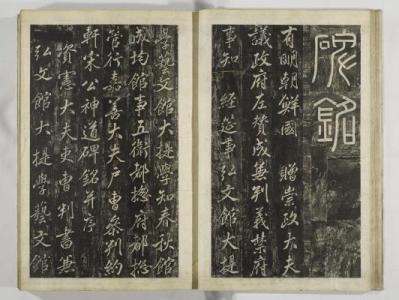 碑銘
有明朝鮮國 贈崇政大夫
議政府左贊成兼判義禁府
事知 經筵事弘文館大提
學藝文館大提學知春秋館
成均館事五衛都摠府都摠
管行嘉善大夫戶曹參判約
軒宋公神道碑銘并序
資憲大夫吏曹判書兼
弘文館大提學藝文館